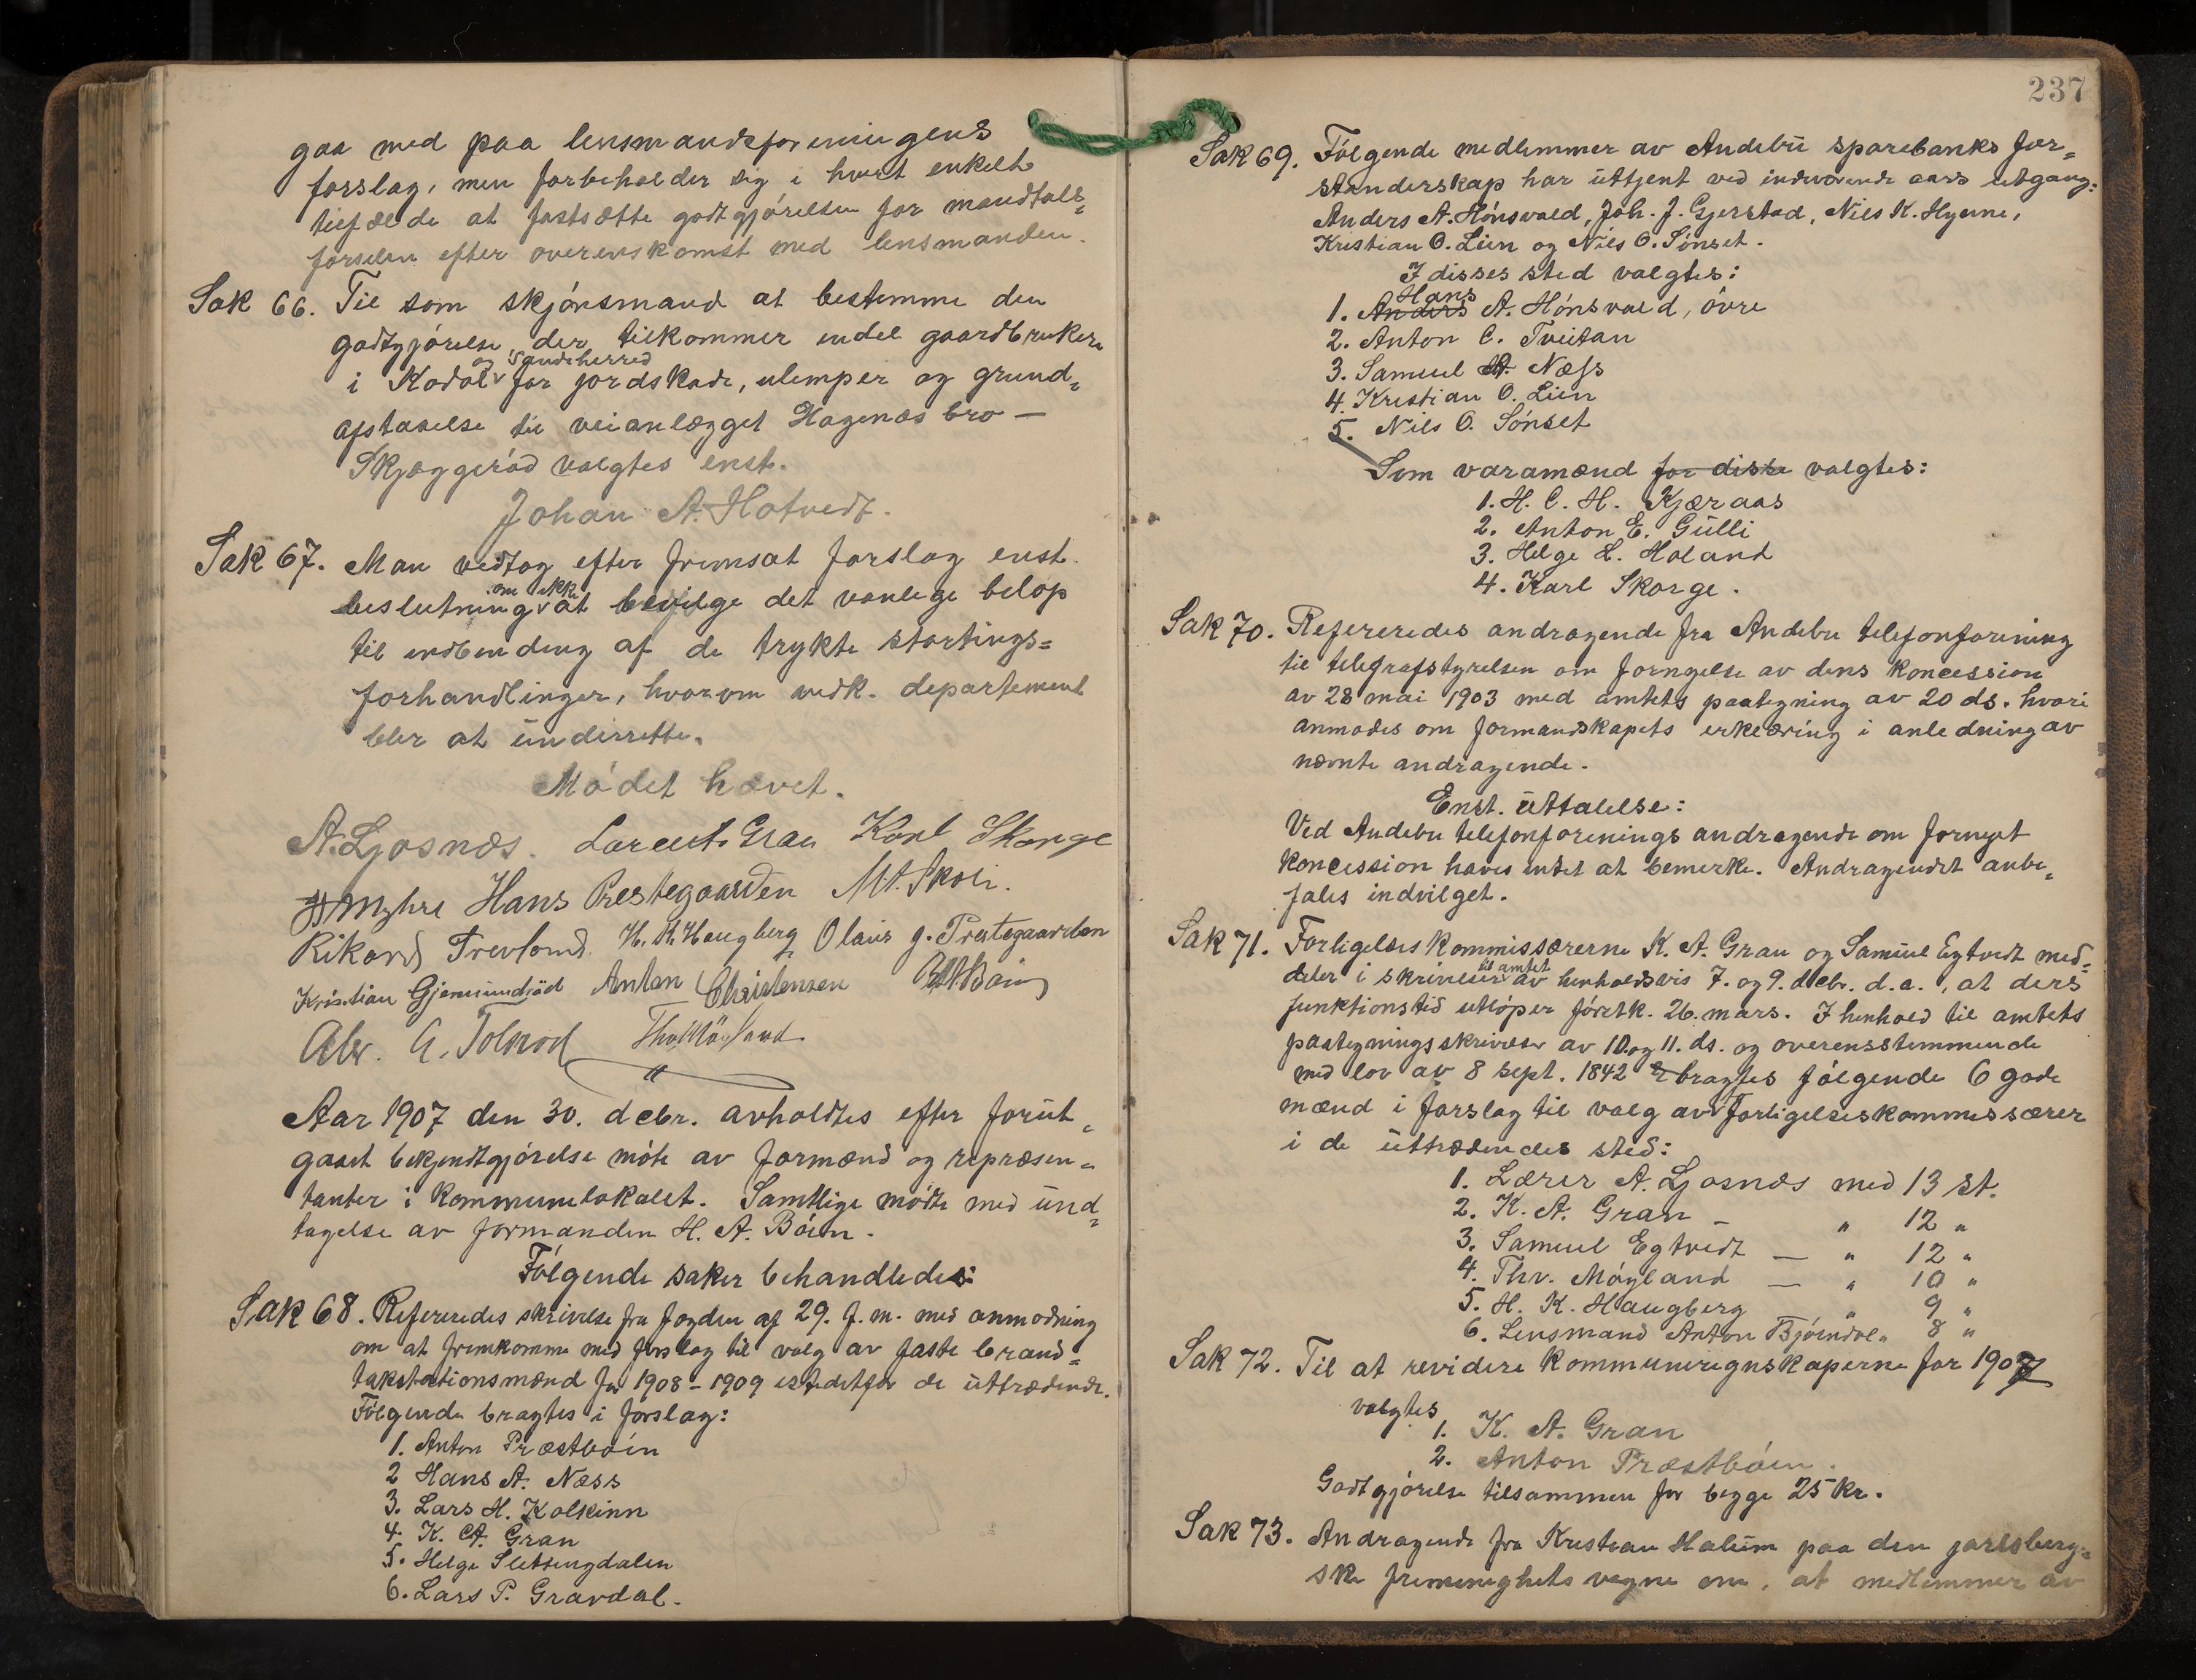 gaa med paa lensmandsforeningens
forslag, men forbeholder sig i hvert enkelt
tilfælde at fastsætte godtgjörelsen for mandtals-
förselen efter overenskomst med lensmanden.
Sak 66. Til som skjönsmand at bestemme den
godtgjörelse, der tilkommer endel gaardbrukere
og Sandeherred
i Kodal for jordskade, ulemper og grund-
afstaaelse til veianlægget Hagenæs bro —
Skjæggeröd valgtes enst.
Johan A. Hotvedt.
Sak 67. Man vedtog efter fremsat forslag enst.
om ikke
beslutning at bevilge det vanlege belöp
til indbinding af de trykte stortings=
forhandlinger, hvorom vedk. departement
blir at underrette.
Mödet hævet.
A. Ljosnæs. Laurits Gran Karl Skorge
Myhre Hans Prestegaarden M. A. Skoli.
Rikard Trevland. H. K. Haugberg Olaus J. Prestegaarden
Kristian Gjermundröd Anton Christensen
Abr. G. Tolsrod Thv Möyland
Aar 1907 den 30. decbr. avholdtes efter forut-
gaaet bekjendtgjörelse möte av formænd og repræsen-
tanter i kommunelokalet. Samtlige mödte med und-
tagelse av formanden H. A. Böen.
Fölgende saker behandledes:
Sak 68. Refereredes skrivelse fra fogden af 29. f. m. med anmodning
om at fremkomme med forslag til valg av faste brand=
takstationsmænd for 1908-1909 istedetfor de uttrædende.
Fölgende bragtes i forslag:
1. Anton Præstböen
2 Hans A. Næss
3. Lars H. Kolkinn
4. K. A. Gran
5. Helge Slettingdalen
6. Lars P. Gravdal.
237
Sak 69. Fölgende medlemmer av Andebu sparebanks for=
standerskap har uttjent ved indeværende aars utgang:
Anders A. Hönsvald, Joh. J. Gjerstad, Nils K. Hyerne,
Kristian O. Lien og Nils O. Sönset.
I disses sted valgtes:
Hans
1. Anders A. Hönsvald, övre
2. Anton C. Tveitan
3. Samuel A. Næss
4. Kristian O. Lien
5. Nils O. Sönset
Som varamænd for disse valgtes:
1. H. C. H. Kjæraas
2. Anton E. Gulli
3. Helge L. Holand
4. Karl Skorge.
Sak 70. Refereredes andragende fra Andebu telefonforening
til telegrafstyrelsen om fornyelse av dens koncession
av 28 mai 1903 med amtets paategning av 20 ds. hvori
anmodes om formandskapets erklæring i anledning av
nævnte andragende.
Enst. uttalelse:
Ved Andebu telefonforenings andragende om fornyet
koncession haves intet at bemerke. Andragendet anbe-
fales indvilget.
Sak 71. Forligelseskommissærerne K. A. Gran og Samuel Egtvedt med-
til amtet
deler i skrivelser av henholdsvis 7. og 9. decbr. d. a., at deres
funktionstid utlöper förstk. 26. mars. I henhold til amtets
paategningsskrivelser av 10. og 11. ds. og overensstemmende
med lov av 8 sept. 1842 bragtes fölgende 6 gode
mænd i forslag til valg av forligelseskommissærer
i de uttrædendes sted:
1. Lærer A. Ljosnæs med 13 st.
2. K. A. Gran — " 12 "
3. Samuel Egtvedt — " 12 "
4. Thv. Möyland — " 10 "
5. H. K. Haugberg " 9 "
6. Lensmand Anton Björndal " 8 "
Sak 72. Til at revidere kommuneregnskaperne for 1907
valgtes
1. K. A. Gran
2. Anton Præstböen.
Godtgjörelse tilsammen for begge 25 kr.
Sak 73. Andragende fra Kristian Halum paa den jarlsberg-
ske frimenighets vegne om, at medlemmer av